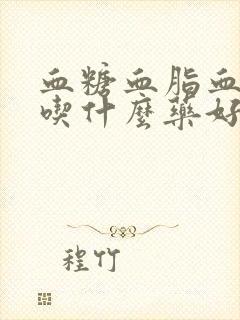 血糖血脂血
喫什麼藥好
程竹